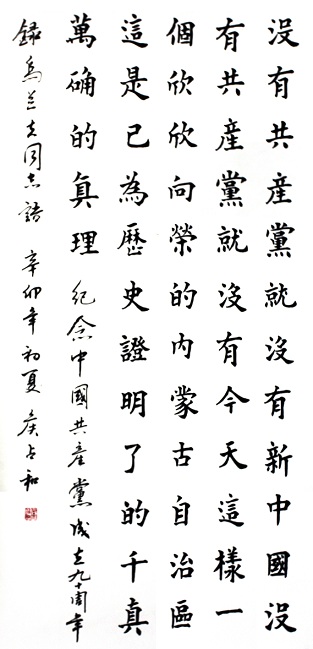 沒有共産黨就沒有新中國沒
有共産黨就沒有今天這樣一
個欣欣向榮的内蒙古自治區
這是已為歷史證明了的千真
萬确的真理 紀念中國共産黨成立九十周年
録烏兰夫同志語 辛卯年初夏 侯占和